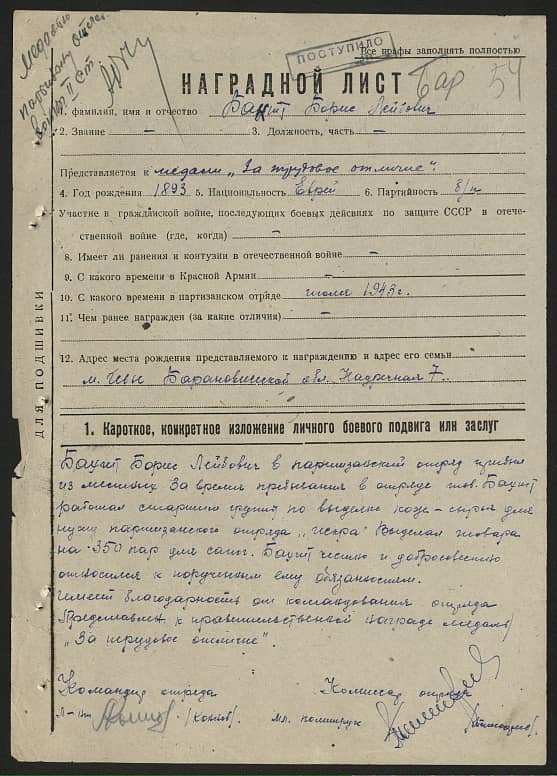 Медалью
партизану отеч.
войны II ст
ПОСТУПИЛО
Все графы заполнять полностью
НАГРАДНОЙ ЛИСТ
Бар 54
1. фамилия, имя и отчество Бакшт Борис Лейбович
2. Звание — 3. Должность, часть —
Представляется к медали „За трудовое отличие".
4. Год рождения 1893 5. Национальность Еврей 6. Партийность б/п
Участие в гражданской войне, последующих боевых действиях по защите СССР в отече-
ственной войне (где, когда) —
8. Имеет ли ранения и контузии в отечественной войне —
9. С какого времени в Красной Армии —
10. С какого времени в партизанском отряде июля 1943 г.
11. Чем ранее награжден (за какие отличия) —
12. Адрес места рождения представляемого к награждению и адрес его семьи
м. Ивье Барановичской обл. Надречная 7.
ДЛЯ ПОДШИВКИ
1. Короткое, конкретное изложение личного боевого подвига или заслуг
Бакшт Борис Лейбович в партизанский отряд прибыл
из местных За время пребывания в отряде тов. Бакшт
работал старшим группы по выделке кож-сырья для
нужд партизанского отряда „Искра" Выделал товара
на 350 пар для сапог. Бакшт честно и добросовестно
относился к порученным ему обязанностям.
Имеет благодарность от командования отряда
Представлен к правительственной награде медаль
„За трудовое отличие".
Командир отряда Комиссар отряда
Л-нт мл. политрук